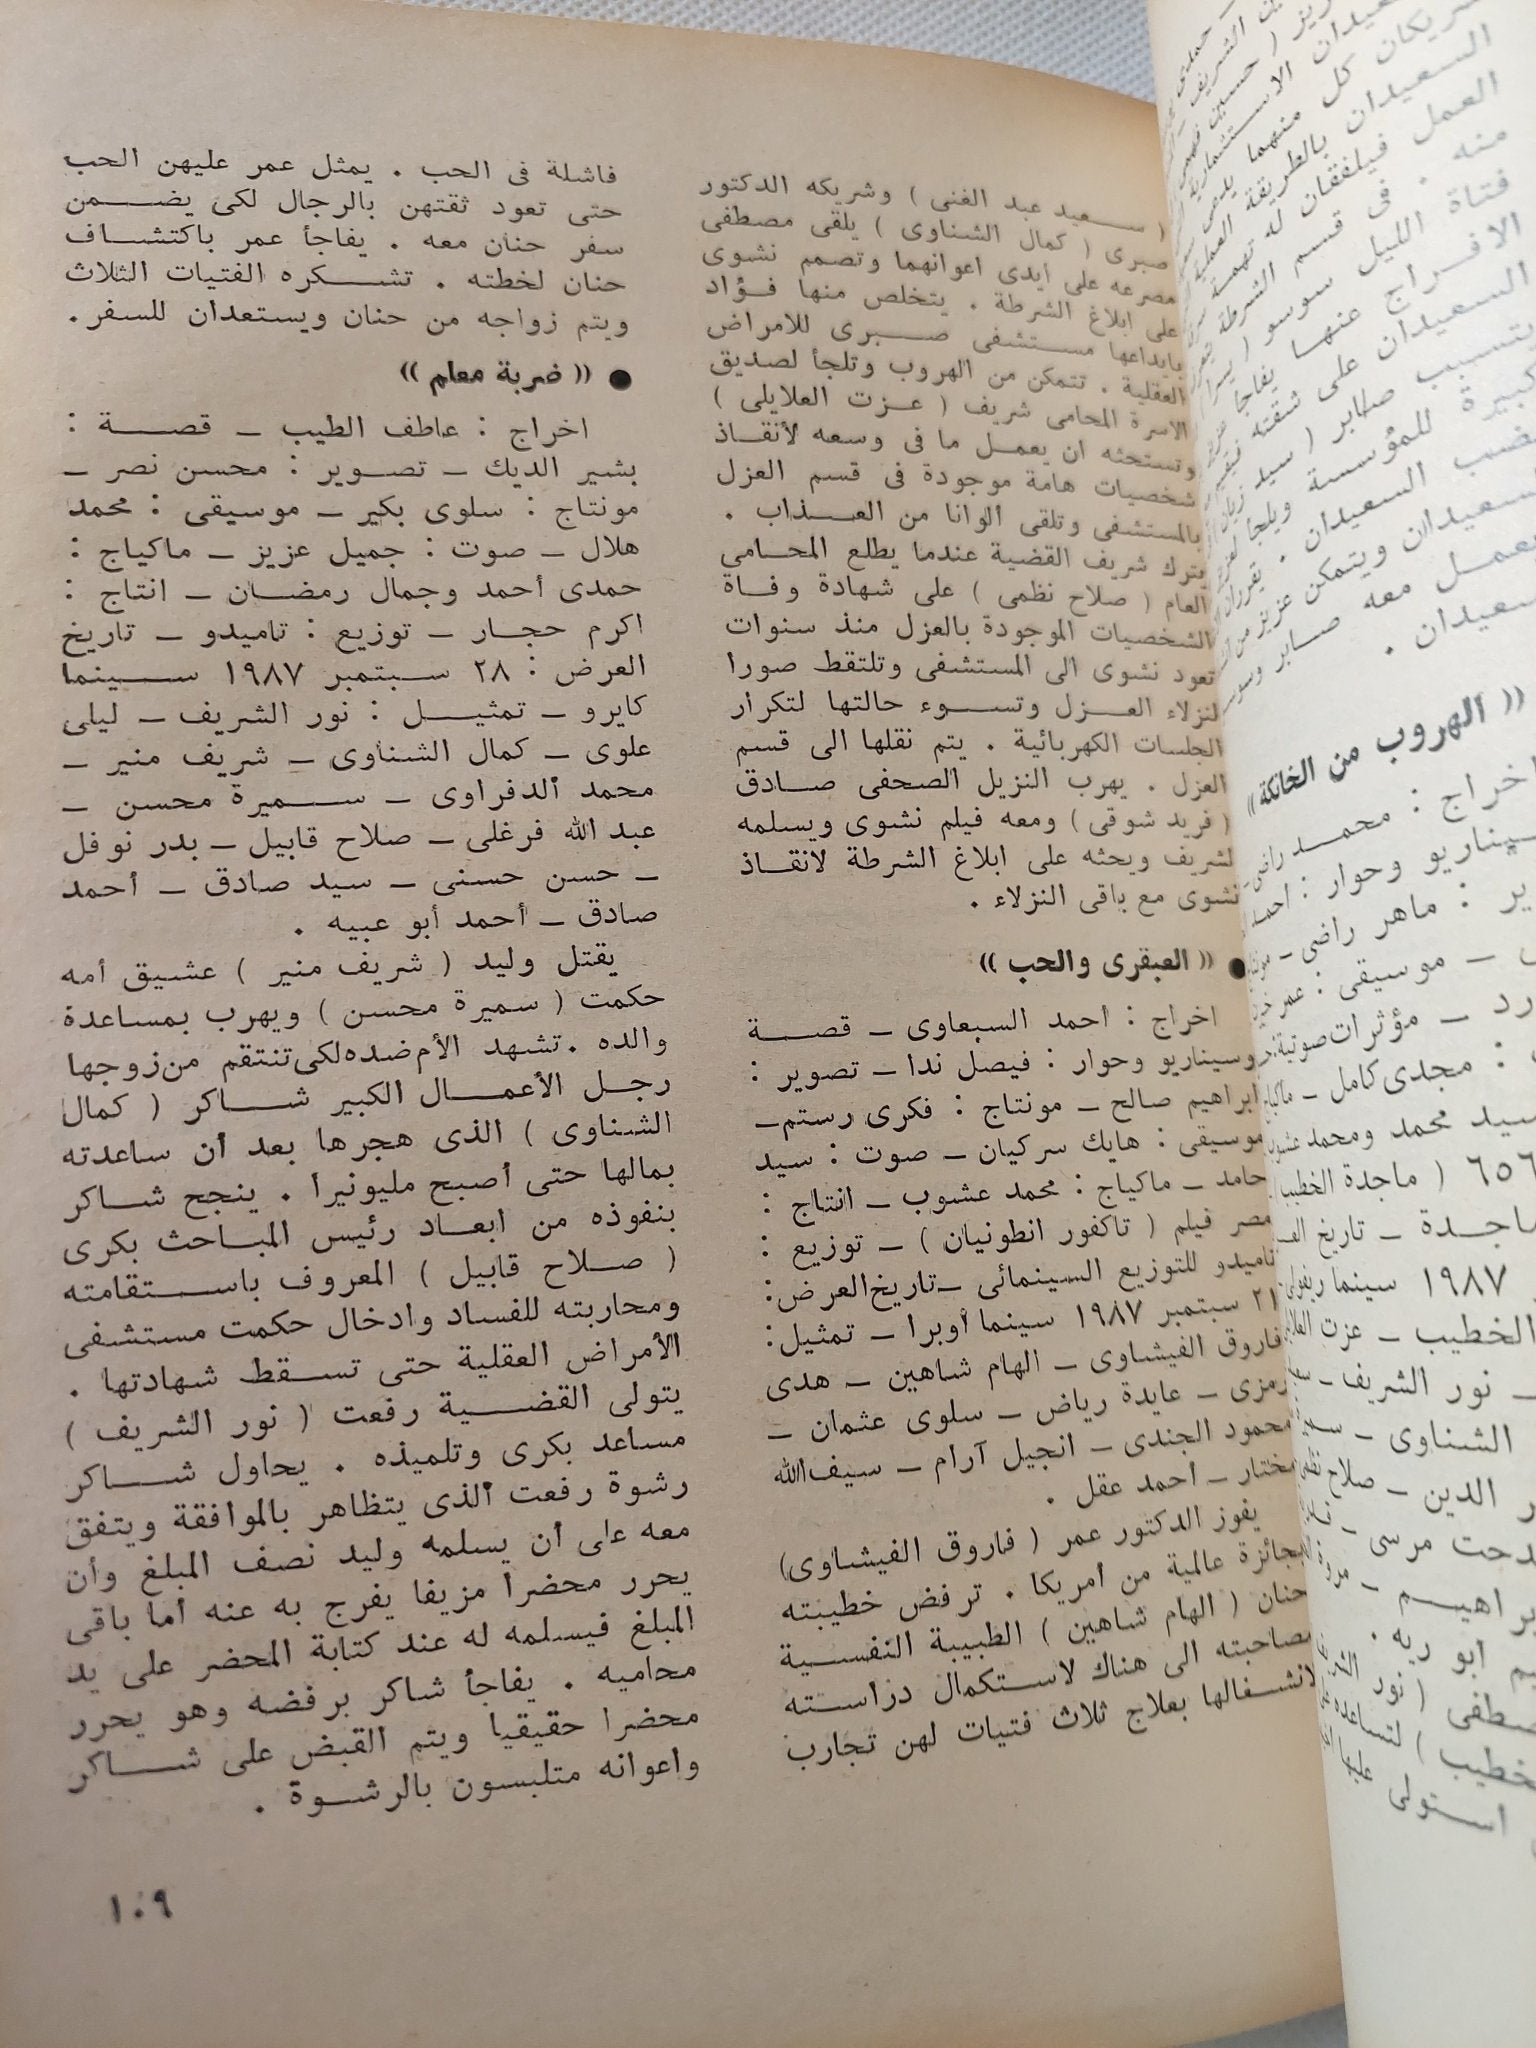 ( سعيد عبد الغنى ) وشريكه الدكتور
صبرى ( كمال الشناوى ) يلقى مصطفى
مصرعه على أيدى اعوانهما وتصمم نشوى
على ابلاغ الشرطة . يتخلص منها فؤاد
بايداعها مستشفى صبرى للامراض
العقلية . تتمكن من الهروب وتلجأ لصديق
الاسرة المحامى شريف ( عزت العلايلى )
وتستحثه ان يعمل ما فى وسعه لأنقاذ
شخصيات هامة موجودة فى قسم العزل
بالمستشفى وتلقى ألوانا من العذاب .
يترك شريف القضية عندما يطلع المحامى
العام ( صلاح نظمى ) على شهادة وفاة
الشخصيات الموجودة بالعزل منذ سنوات
تعود نشوى الى المستشفى وتلتقط صورا
لنزلاء العزل وتسوء حالتها لتكرار
الجلسات الكهربائية . يتم نقلها الى قسم
العزل . يهرب النزيل الصحفى صادق
( فريد شوقى ) ومعه فيلم نشوى ويسلمه
لشريف ويحثه على ابلاغ الشرطة لانقاذ
نشوى مع باقى النزلاء .
● « العبقرى والحب »
اخراج : احمد السبعاوى ـ قصة
وسيناريو وحوار : فيصل ندا ـ تصوير :
ابراهيم صالح ـ مونتاج : فكرى رستم ـ
موسيقى : هايك سركيان ـ صوت : سيد
حامد ـ ماكياج : محمد عشوب ـ انتاج :
مصر فيلم ( تاكفور انطونيان ) ـ توزيع :
تاميدو للتوزيع السينمائى ـ تاريخ العرض :
٢١ سبتمبر ١٩٨٧ سينما أوبرا ـ تمثيل :
فاروق الفيشاوى ـ الهام شاهين ـ هدى
رمزى ـ عايدة رياض ـ سلوى عثمان ـ
محمود الجندى ـ انجيل آرام ـ سيف الله
مختار ـ أحمد عقل .
يفوز الدكتور عمر ( فاروق الفيشاوى )
بجائزة عالمية من أمريكا . ترفض خطيبته
حنان ( الهام شاهين ) الطبيبة النفسية
مصاحبته الى هناك لاستكمال دراسته
لانشغالها بعلاج ثلاث فتيات لهن تجارب
فاشلة فى الحب . يمثل عمر عليهن الحب
حتى تعود ثقتهن بالرجال لكى يضمن
سفر حنان معه . يفاجأ عمر باكتشاف
حنان لخطته . تشكره الفتيات الثلاث
ويتم زواجه من حنان ويستعدان للسفر .
● « ضربة معلم »
اخراج : عاطف الطيب ـ قصة :
بشير الديك ـ تصوير : محسن نصر ـ
مونتاج : سلوى بكير ـ موسيقى : محمد
هلال ـ صوت : جميل عزيز ـ ماكياج :
حمدى أحمد وجمال رمضان ـ انتاج :
اكرم حجار ـ توزيع : تاميدو ـ تاريخ
العرض : ٢٨ سبتمبر ١٩٨٧ سينما
كايرو ـ تمثيل : نور الشريف ـ ليلى
علوى ـ كمال الشناوى ـ شريف منير ـ
محمد الدفراوى ـ سميرة محسن ـ
عبد الله فرغلى ـ صلاح قابيل ـ بدر نوفل
ـ حسن حسنى ـ سيد صادق ـ أحمد
صادق ـ أحمد أبو عبيه .
يقتل وليد ( شريف منير ) عشيق أمه
حكمت ( سميرة محسن ) ويهرب بمساعدة
والده . تشهد الأم ضده لكى تنتقم من زوجها
رجل الأعمال الكبير شاكر ( كمال
الشناوى ) الذى هجرها بعد أن ساعدته
بمالها حتى أصبح مليونيرا . ينجح شاكر
بنفوذه من ابعاد رئيس المباحث بكرى
( صلاح قابيل ) المعروف باستقامته
ومحاربته للفساد وادخال حكمت مستشفى
الأمراض العقلية حتى تسقط شهادتها .
يتولى القضية رفعت ( نور الشريف )
مساعد بكرى وتلميذه . يحاول شاكر
رشوة رفعت الذى يتظاهر بالموافقة ويتفق
معه على أن يسلمه وليد نصف المبلغ وأن
يحرر محضرا مزيفا يفرج به عنه أما باقى
المبلغ فيسلمه له عند كتابة المحضر على يد
محاميه . يفاجأ شاكر برفضه وهو يحرر
محضرا حقيقيا ويتم القبض على شاكر
واعوانه متلبسون بالرشوة .
١٠٩
شريكان كل منهما
السعيدان بالطريقة
العمل فيلفقان له تهمة
منه . فى قسم الشرطة
فتاة الليل سوسو
الافراج عنها يفاجأ
السعيدان على شقته
يتسبب صابر ( سيد زيان
كبيرة للمؤسسة ويلجأ
السعيدان . يقرران
ويتمكن عزيز من
يعمل معه صابر
« الهروب من الخانكة »
اخراج : محمد راضى
سيناريو وحوار : احمد
: ماهر راضى ـ
ـ موسيقى : عمر
ـ مؤثرات صوتية :
: مجدى كامل ـ
سيد محمد ومحمد
٦٥٦ ( ماجدة الخطيب
ماجدة ـ تاريخ
١٩٨٧ سينما ريفولى
الخطيب ـ عزت
ـ نور الشريف ـ
الشناوى ـ
الدين ـ صلاح
مدحت مرسى ـ
ابراهيم ـ
ابو ريه .
مصطفى ( نور
الخطيب ) لتساعده
استولى عليها